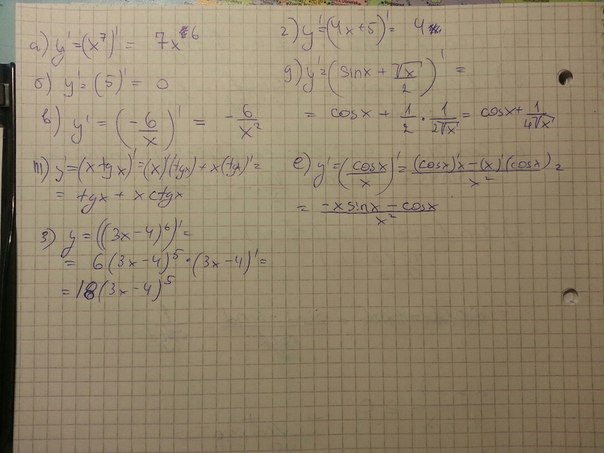 а) y' = (x⁷)' = 7x⁶
б) y' = (5)' = 0
в) y' = (-6/x)' = -6/x²
m) y' = (x tgx)' = (x)'(tgx) + x(tgx)' =
= tgx + x ctgx
з) y = ((3x-4)⁶)' =
= 6(3x-4)⁵ · (3x-4)' =
= 18(3x-4)⁵
г) y' = (4x+5)' = 4
g) y' = (sinx + √x/2)' =
= cosx + 1/2 · 1/(2√x) = cosx + 1/(4√x)
е) y' = (cosx/x)' = ((cosx)'x - (x)'(cosx))/x² =
= (-x sinx - cosx)/x²